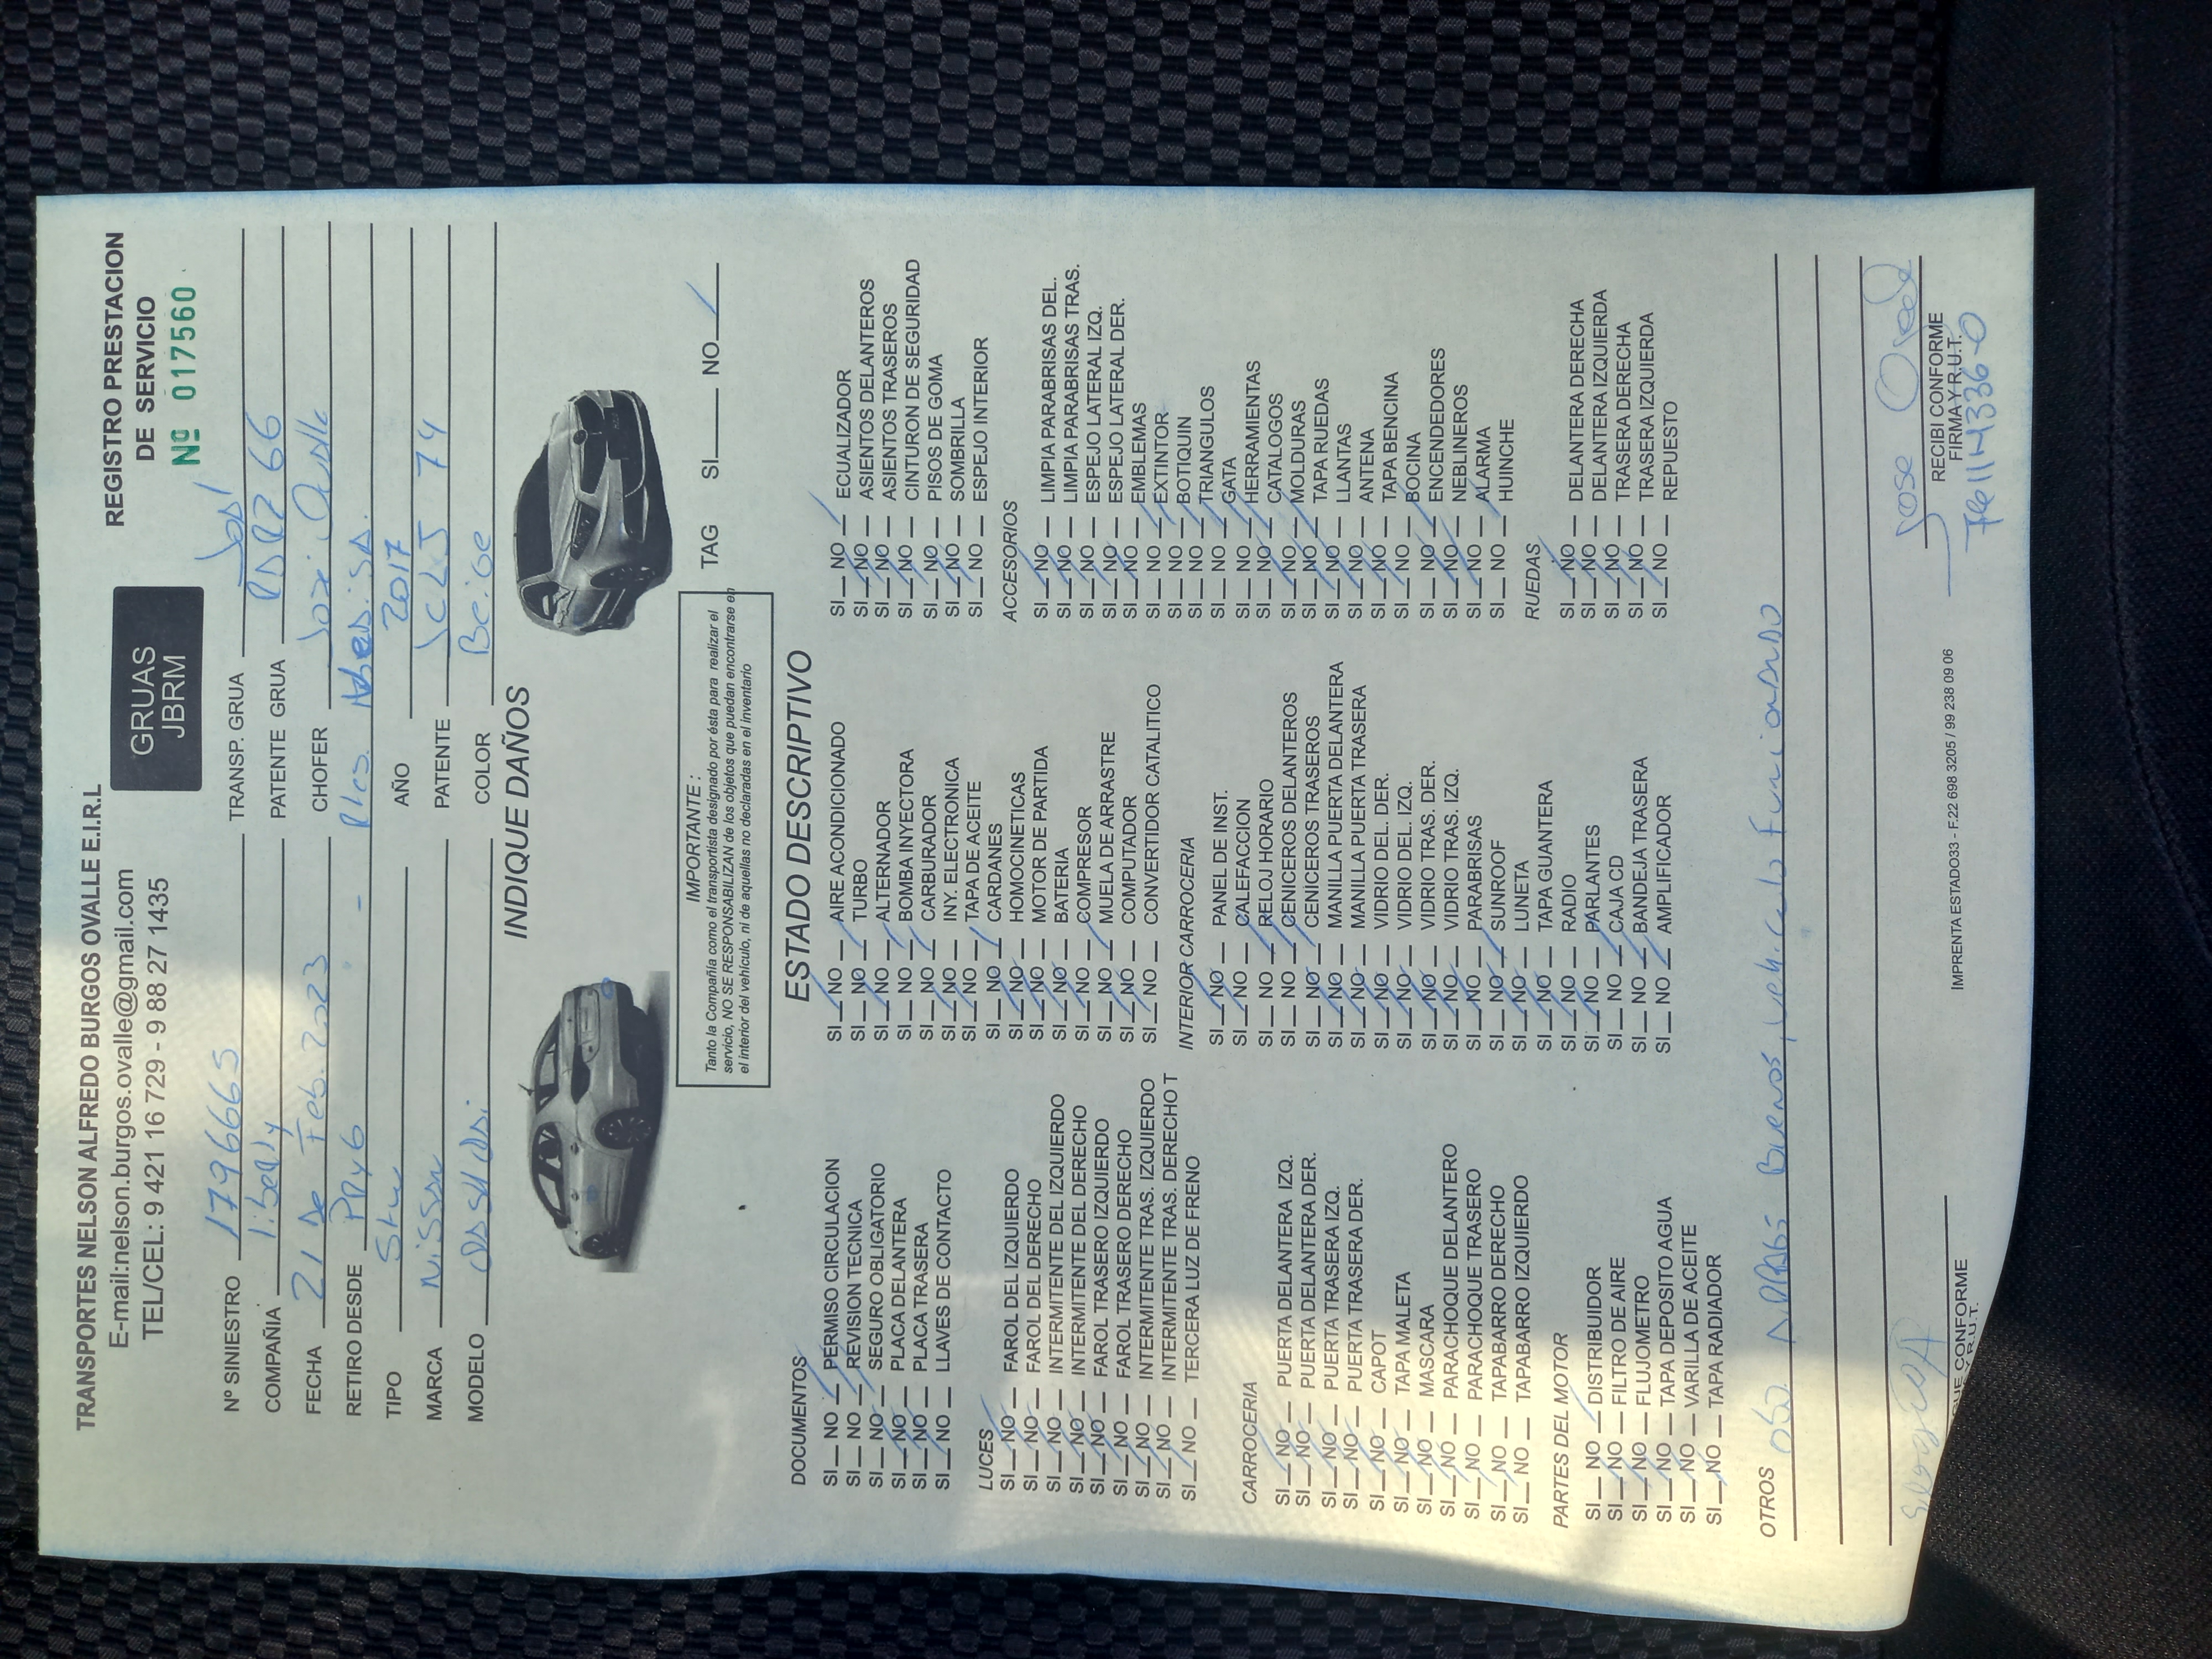 TRANSPORTES NELSON ALFREDO BURGOS OVALLE E.I.R.L
E-mail:nelson.burgos.ovalle@gmail.com
TEL/CEL: 9 421 16 729 - 9 88 27 1435
GRUAS
JBRM
REGISTRO PRESTACION
DE SERVICIO
Nº 017560
Nº SINIESTRO 1796665 TRANSP. GRUA
COMPAÑIA PATENTE GRUA 66
FECHA 21 De Feb. 2023 CHOFER
RETIRO DESDE
TIPO AÑO 2017
MARCA Nissan PATENTE 74
MODELO COLOR Beige
INDIQUE DAÑOS
IMPORTANTE :
Tanto la Compañía como el transportista designado por ésta para realizar el
servicio, NO SE RESPONSABILIZAN de los objetos que puedan encontrarse en
el interior del vehículo, ni de aquellas no declaradas en el inventario
TAG SI NO
ESTADO DESCRIPTIVO
DOCUMENTOS
SI NO PERMISO CIRCULACION
SI NO REVISION TECNICA
SI NO SEGURO OBLIGATORIO
SI NO PLACA DELANTERA
SI NO PLACA TRASERA
SI NO LLAVES DE CONTACTO
LUCES
SI NO FAROL DEL IZQUIERDO
SI NO FAROL DEL DERECHO
SI NO INTERMITENTE DEL IZQUIERDO
SI NO INTERMITENTE DEL DERECHO
SI NO FAROL TRASERO IZQUIERDO
SI NO FAROL TRASERO DERECHO
SI NO INTERMITENTE TRAS. IZQUIERDO
SI NO INTERMITENTE TRAS. DERECHO T
SI NO TERCERA LUZ DE FRENO
CARROCERIA
SI NO PUERTA DELANTERA IZQ.
SI NO PUERTA DELANTERA DER.
SI NO PUERTA TRASERA IZQ.
SI NO PUERTA TRASERA DER.
SI NO CAPOT
SI NO TAPA MALETA
SI NO MASCARA
SI NO PARACHOQUE DELANTERO
SI NO PARACHOQUE TRASERO
SI NO TAPABARRO DERECHO
SI NO TAPABARRO IZQUIERDO
PARTES DEL MOTOR
SI NO DISTRIBUIDOR
SI NO FILTRO DE AIRE
SI NO FLUJOMETRO
SI NO TAPA DEPOSITO AGUA
SI NO VARILLA DE ACEITE
SI NO TAPA RADIADOR
SI NO AIRE ACONDICIONADO
SI NO TURBO
SI NO ALTERNADOR
SI NO BOMBA INYECTORA
SI NO CARBURADOR
SI NO INY. ELECTRONICA
SI NO TAPA DE ACEITE
SI NO CARDANES
SI NO HOMOCINETICAS
SI NO MOTOR DE PARTIDA
SI NO BATERIA
SI NO COMPRESOR
SI NO MUELA DE ARRASTRE
SI NO COMPUTADOR
SI NO CONVERTIDOR CATALITICO
INTERIOR CARROCERIA
SI NO PANEL DE INST.
SI NO CALEFACCION
SI NO RELOJ HORARIO
SI NO CENICEROS DELANTEROS
SI NO CENICEROS TRASEROS
SI NO MANILLA PUERTA DELANTERA
SI NO MANILLA PUERTA TRASERA
SI NO VIDRIO DEL. DER.
SI NO VIDRIO DEL. IZQ.
SI NO VIDRIO TRAS. DER.
SI NO VIDRIO TRAS. IZQ.
SI NO PARABRISAS
SI NO SUNROOF
SI NO LUNETA
SI NO TAPA GUANTERA
SI NO RADIO
SI NO PARLANTES
SI NO CAJA CD
SI NO BANDEJA TRASERA
SI NO AMPLIFICADOR
SI NO ECUALIZADOR
SI NO ASIENTOS DELANTEROS
SI NO ASIENTOS TRASEROS
SI NO CINTURON DE SEGURIDAD
SI NO PISOS DE GOMA
SI NO SOMBRILLA
SI NO ESPEJO INTERIOR
ACCESORIOS
SI NO LIMPIA PARABRISAS DEL.
SI NO LIMPIA PARABRISAS TRAS.
SI NO ESPEJO LATERAL IZQ.
SI NO ESPEJO LATERAL DER.
SI NO EMBLEMAS
SI NO EXTINTOR
SI NO BOTIQUIN
SI NO TRIANGULOS
SI NO GATA
SI NO HERRAMIENTAS
SI NO CATALOGOS
SI NO MOLDURAS
SI NO TAPA RUEDAS
SI NO LLANTAS
SI NO ANTENA
SI NO TAPA BENCINA
SI NO BOCINA
SI NO ENCENDEDORES
SI NO NEBLINEROS
SI NO ALARMA
SI NO HUINCHE
RUEDAS
SI NO DELANTERA DERECHA
SI NO DELANTERA IZQUIERDA
SI NO TRASERA DERECHA
SI NO TRASERA IZQUIERDA
SI NO REPUESTO
OTROS Buenos, vehiculo funcionando
Jose
RECIBI CONFORME
FIRMA Y R.U.T.
IMPRENTA ESTADO33 - F.22 698 3205 / 99 238 09 06